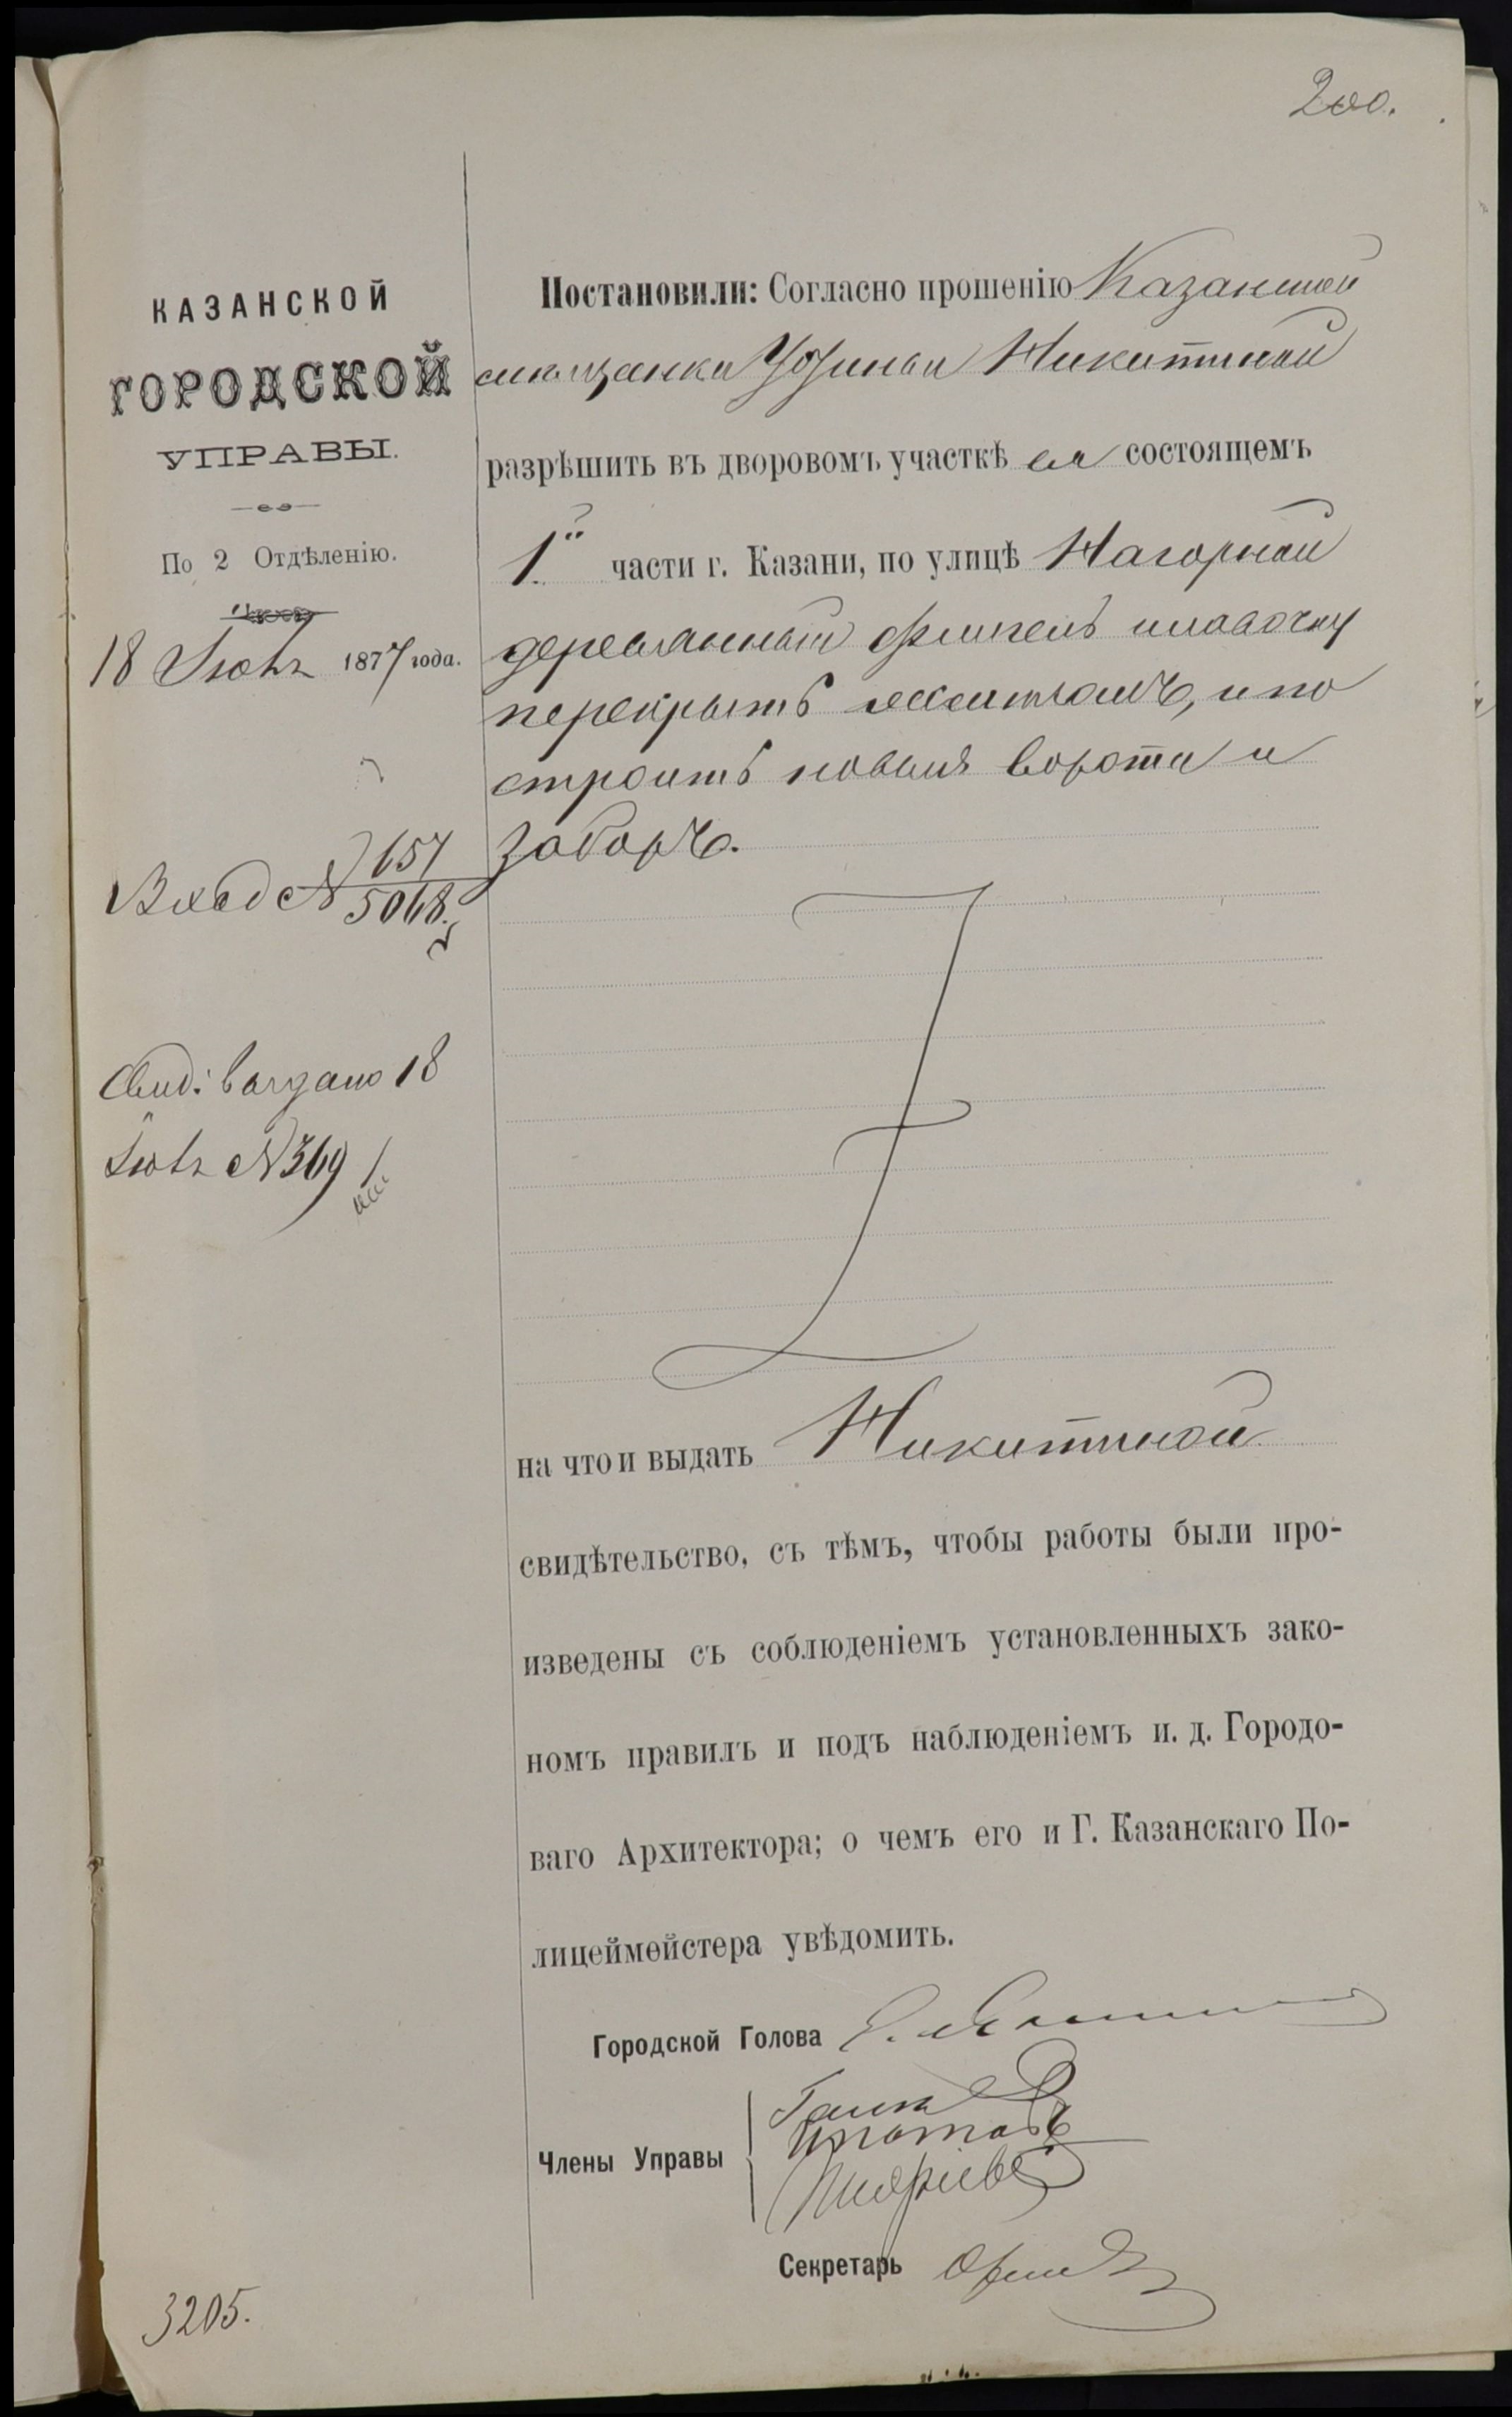 200.
КАЗАНСКОЙ
ГОРОДСКОЙ
УПРАВЫ.
По 2 Отдѣленію.
18 Іюля 1877 года.
Вход № 657
5068.
Свид: выдано 18
Іюля № 369
3205.
Постановили: Согласно прошенію Казанской
мѣщанки Устиньи Никитиной
разрѣшить въ дворовомъ участкѣ ея состоящемъ
1й части г. Казани, по улицѣ Нагорной
деревянный флигель и лавочку
перекрыть желѣзомъ, и по
строить новыя ворота и
заборъ.
на что и выдать Никитиной
свидѣтельство, съ тѣмъ, чтобы работы были про-
изведены съ соблюденіемъ установленныхъ зако-
номъ правилъ и подъ наблюденіемъ и. д. Городо-
ваго Архитектора; о чемъ его и Г. Казанскаго По-
лицеймейстера увѣдомить.
Городской Голова
Члены Управы
Секретарь